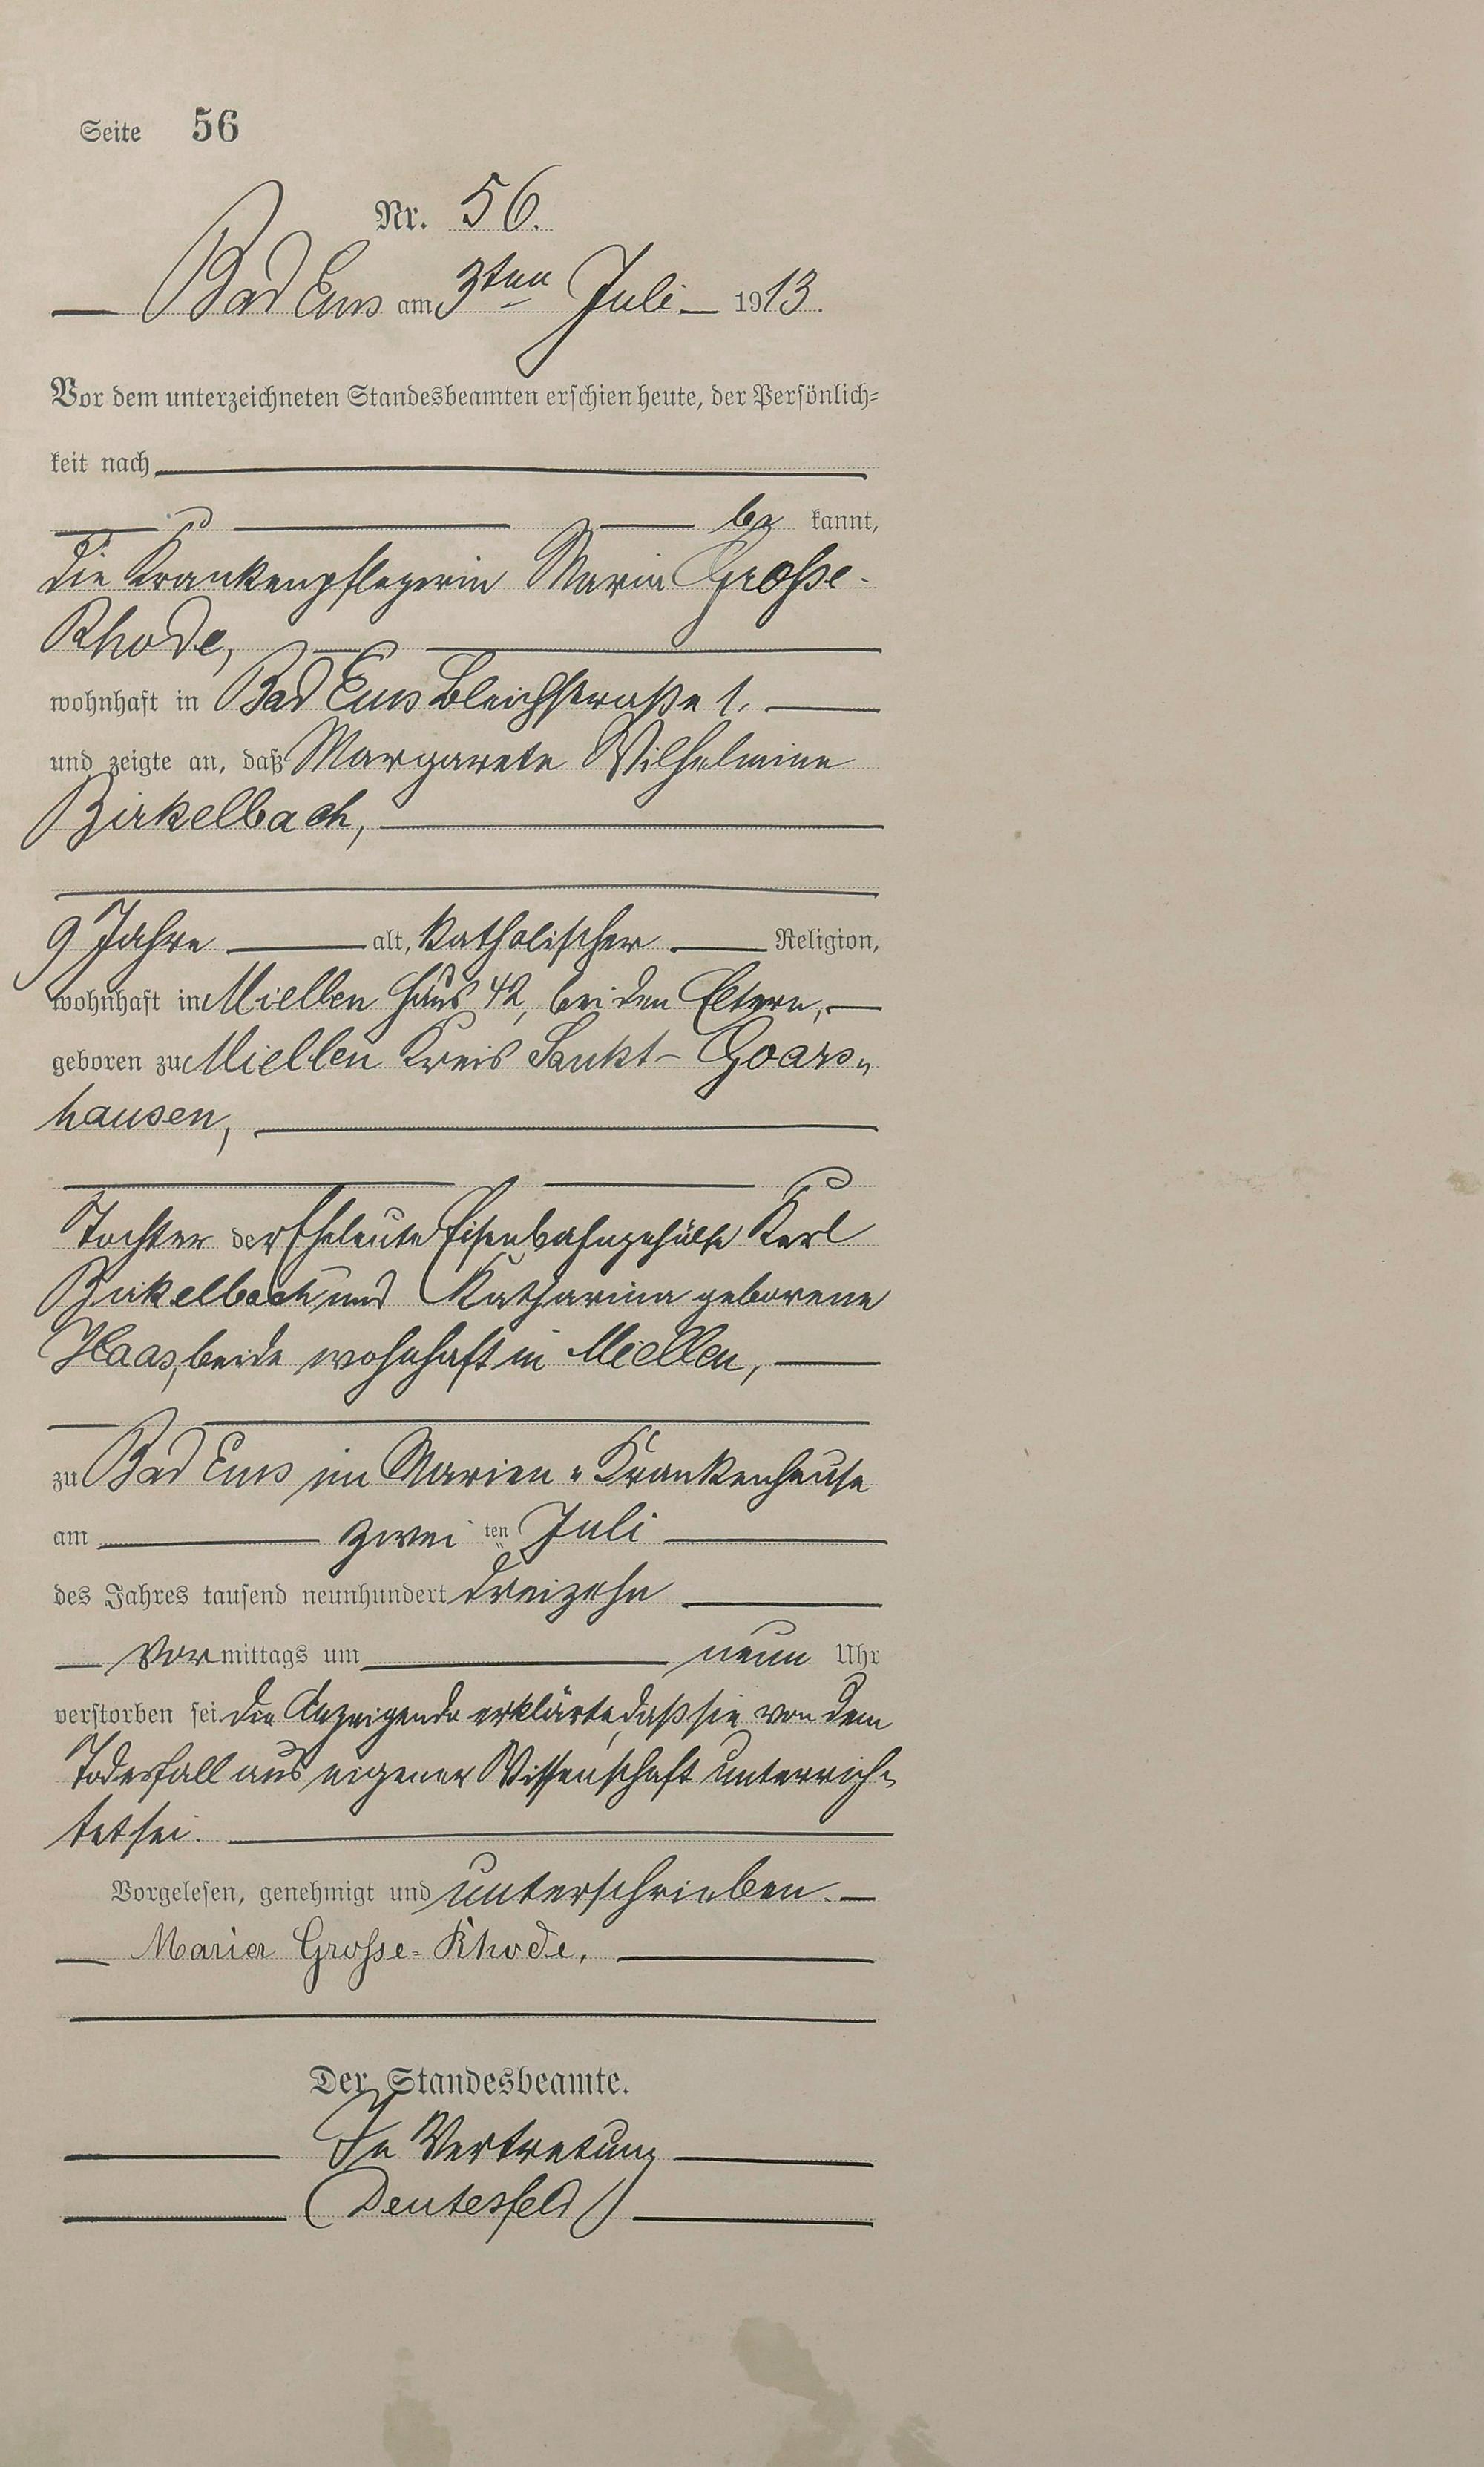 Seite 56
Nr. 56.
Bad Ems am 3ten Juli 1913.
Vor dem unterzeichneten Standesbeamten erschien heute, der Persönlich-
keit nach
be kannt,
die Krankenpflegerin Maria Große-
Rhode,
wohnhaft in Bad Ems Bleichstraße 1.
und zeigte an, daß Margarete Wilhelmine
Birkelbach,
9 Jahre alt, katholischer Religion,
wohnhaft in Miellen Haus 42, bei den Eltern,
geboren zu Miellen Kreis Sankt-Goars-
hausen,
Tochter der Eheleute Eisenbahngehülfe Karl
Birkelbach und Katharina geborene
Haas, beide wohnhaft in Miellen,
zu Bad Ems im Marien-Krankenhause
am zwei ten Juli
des Jahres tausend neunhundert dreizehn
Vor mittags um neun Uhr
verstorben sei die Anzeigende erklärte, daß sie von dem
Todesfall aus eigener Wissenschaft unterrich-
tet sei.
Vorgelesen, genehmigt und unterschrieben.
Maria Grosse-Rhode.
Der Standesbeamte.
In Vertretung
(Deutesfeld)